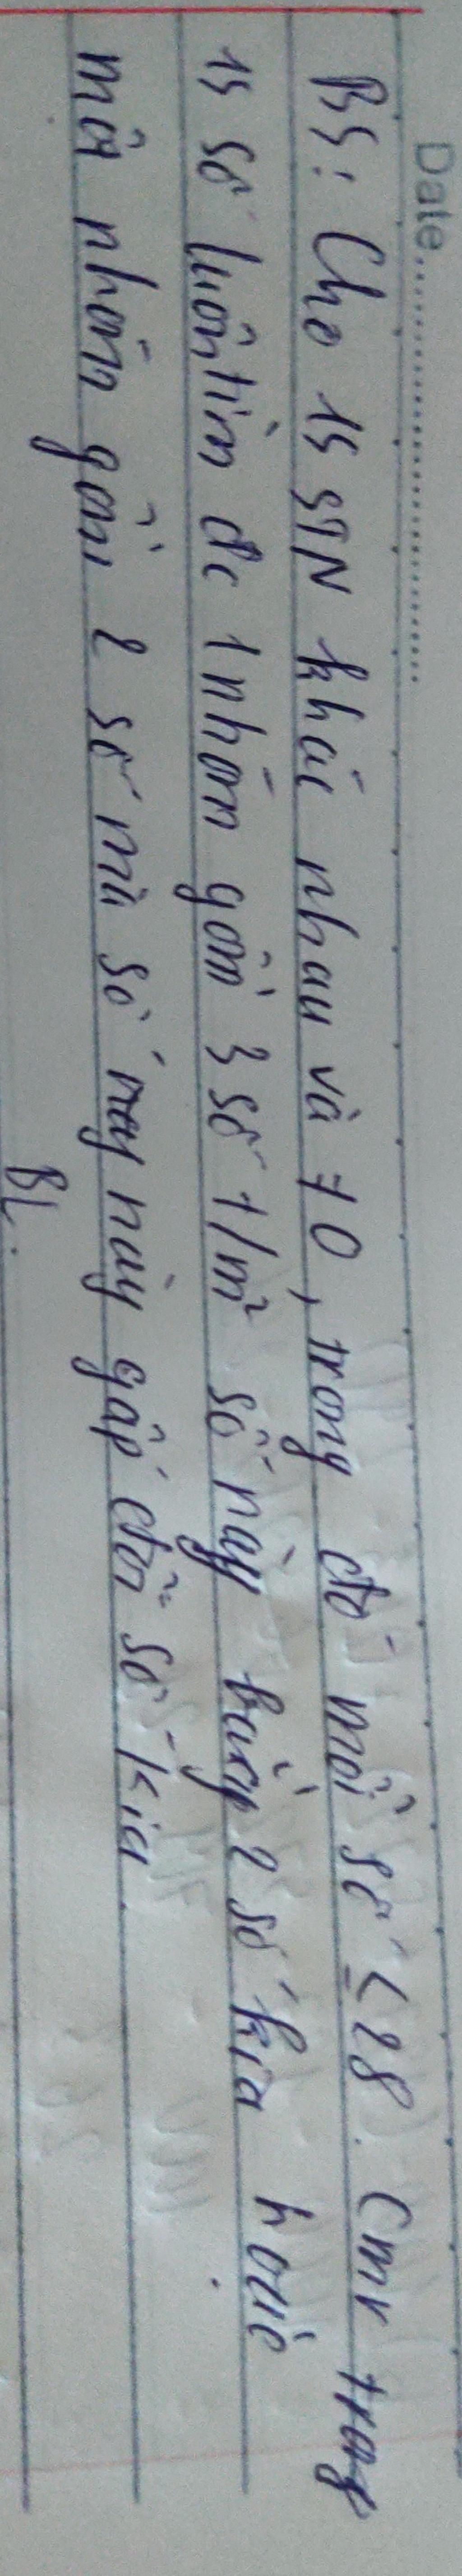 Date..............................
B5: Cho 15 STN khác nhau và ≠ 0, trong đó mỗi số ≤ 28. Cmr trong
15 số luôn tìm đc 1 nhóm gồm 3 số t/m số này bằng 2 số kia hoặc
một nhóm gồm 2 số mà số này gấp đôi số kia
BL: